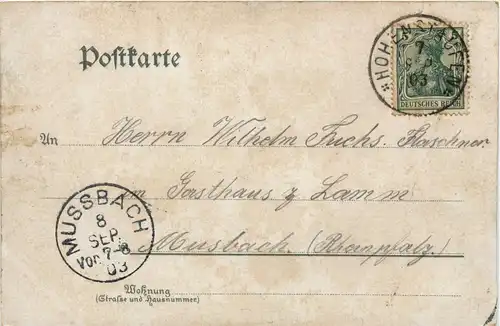 Postkarte
HOHENSTAUFEN
7
SEP
03
DEUTSCHES REICH
An Herrn Wilhelm Fuchs. Flaschner
im Gasthaus z Lamm
Musbach (Rheinpfalz)
MUSSBACH
8
SEP.
Vor. 7-8
03
Wohnung
(Straße und Hausnummer)